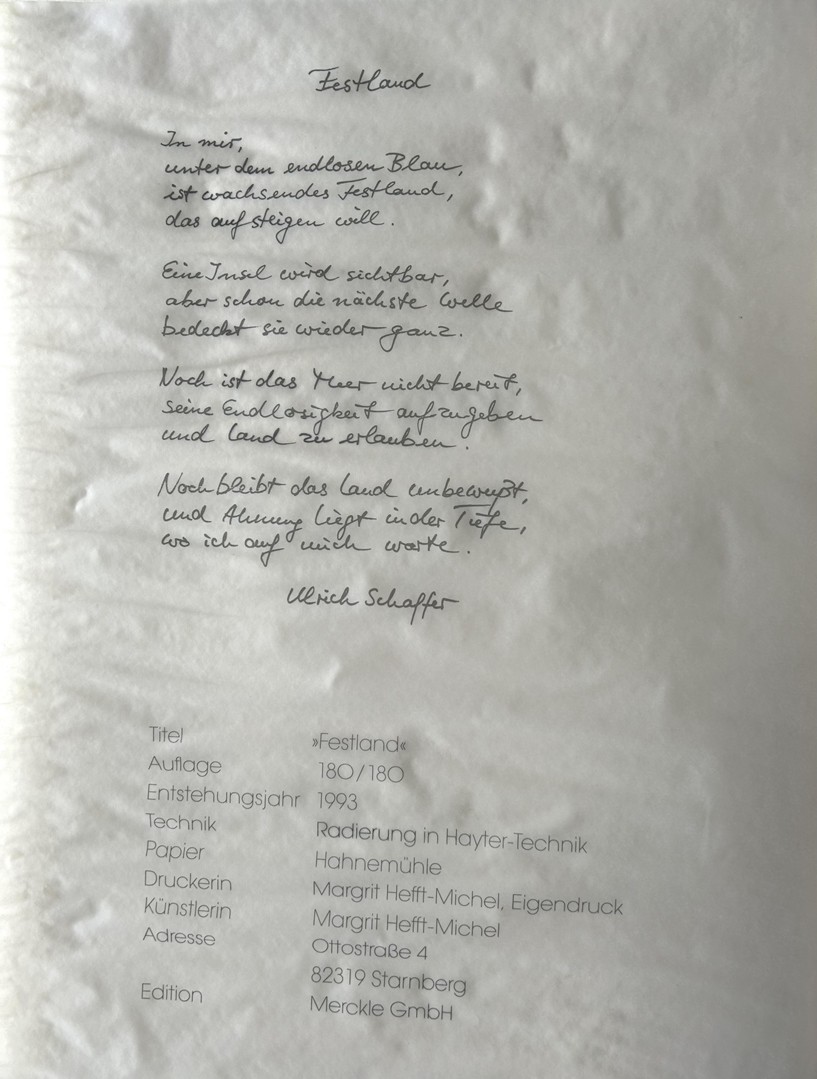 Festland
In mir,
unter dem endlosen Blau,
ist wachsendes Festland,
das aufsteigen will.
Eine Insel wird sichtbar,
aber schon die nächste Welle
bedeckt sie wieder ganz.
Noch ist das Meer nicht bereit,
seine Endlosigkeit aufzugeben
und Land zu erlauben.
Noch bleibt das Land unbewußt,
und Ahnung liegt in der Tiefe,
wo ich auf mich warte.
Ulrich Schaffer
Titel »Festland«
Auflage 180/180
Entstehungsjahr 1993
Technik Radierung in Hayter-Technik
Papier Hahnemühle
Druckerin Margrit Hefft-Michel, Eigendruck
Künstlerin Margrit Hefft-Michel
Adresse Ottostraße 4
82319 Starnberg
Edition Merckle GmbH